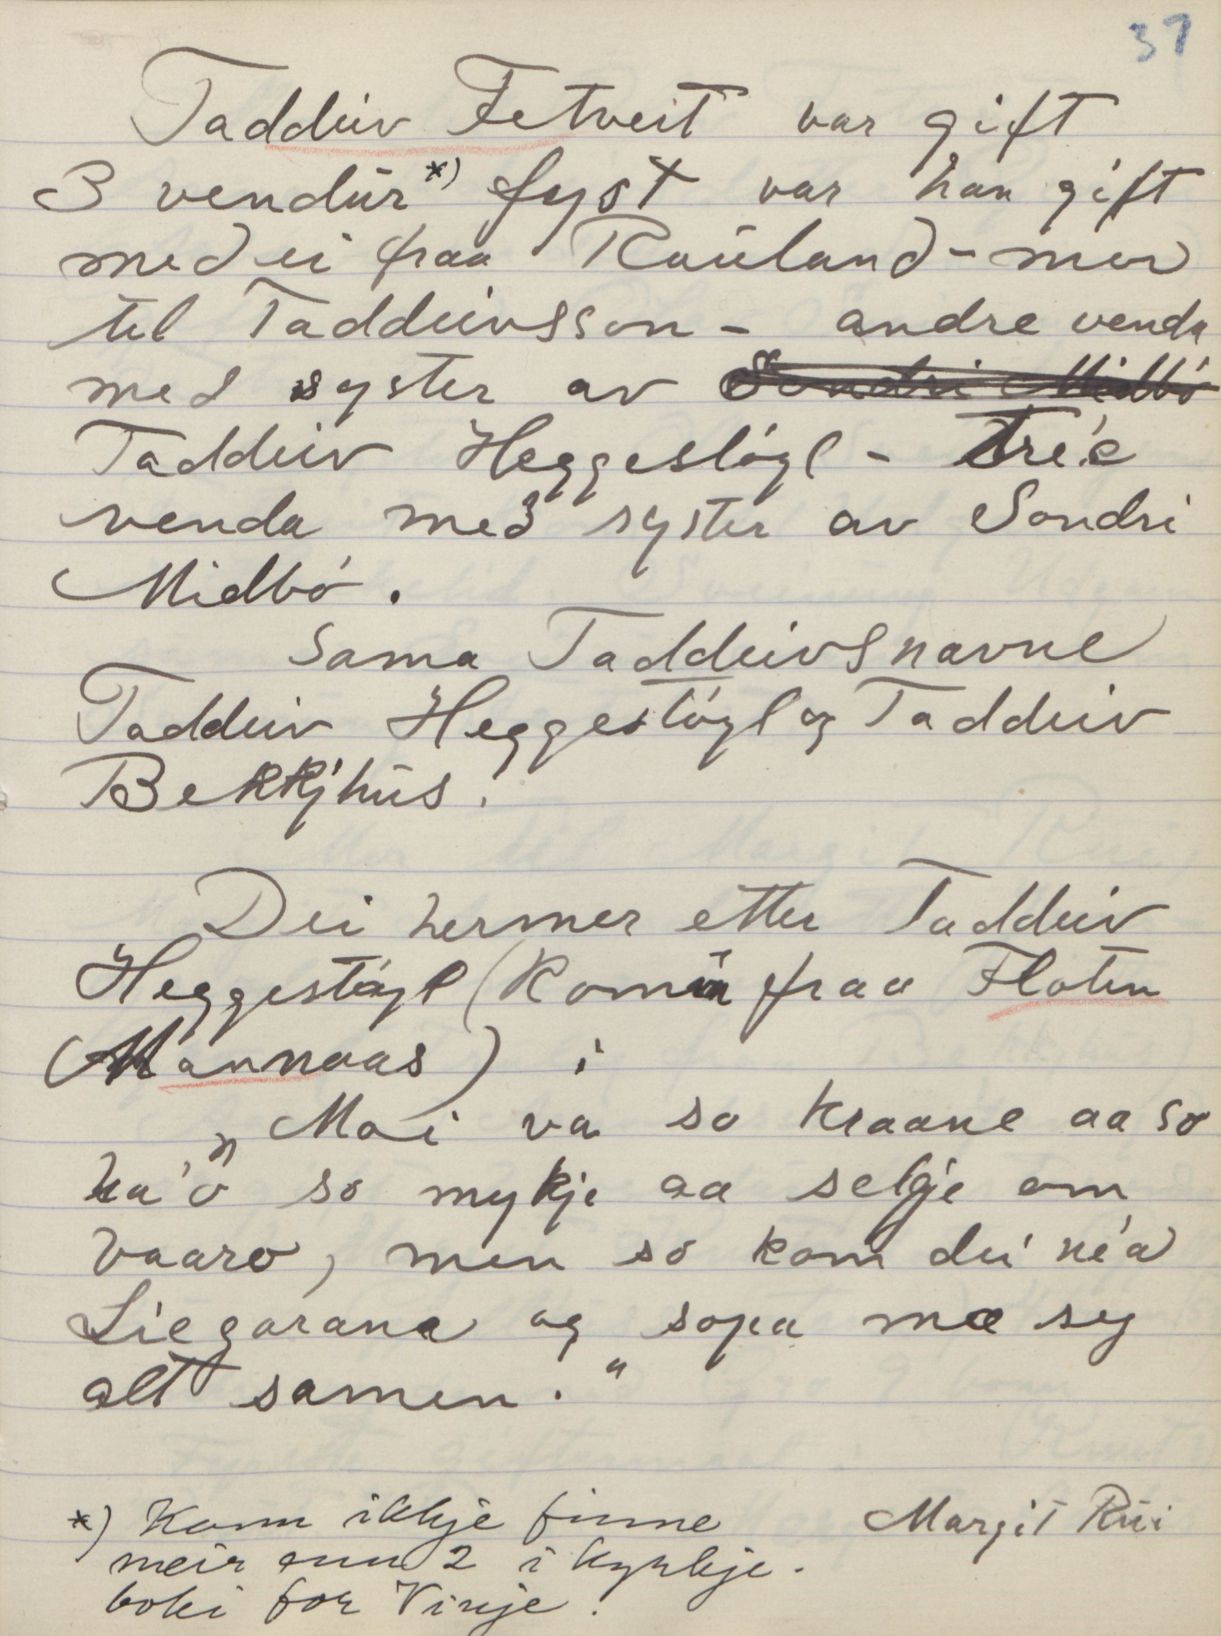 37
Taddeiv Fetveit var gift
3 vendur *) fyst var han gift
med ei fraa Rauland - mor
til Taddeivsson - andre venda
med syster av Sondri Midbó
Taddeiv Heggestógl - Tré'e
venda med syster av Sondri
Midbó.
Sama Taddeivsnavne
Taddeiv Heggestógl og Taddeiv
Bekkjhus.
Dei hermer etter Taddeiv
Heggestógl (Komin fraa Floten
(Mannaas) :
„Moi va so kraane aa so
ha'o so mykje aa selgje om
vaaro, men so kom dei né'a
Liegarane og sopa mæ seg
alt samen."
*) Kann ikkje finne
meir enn 2 i kyrkje-
boki for Vinje.
Margit Rui